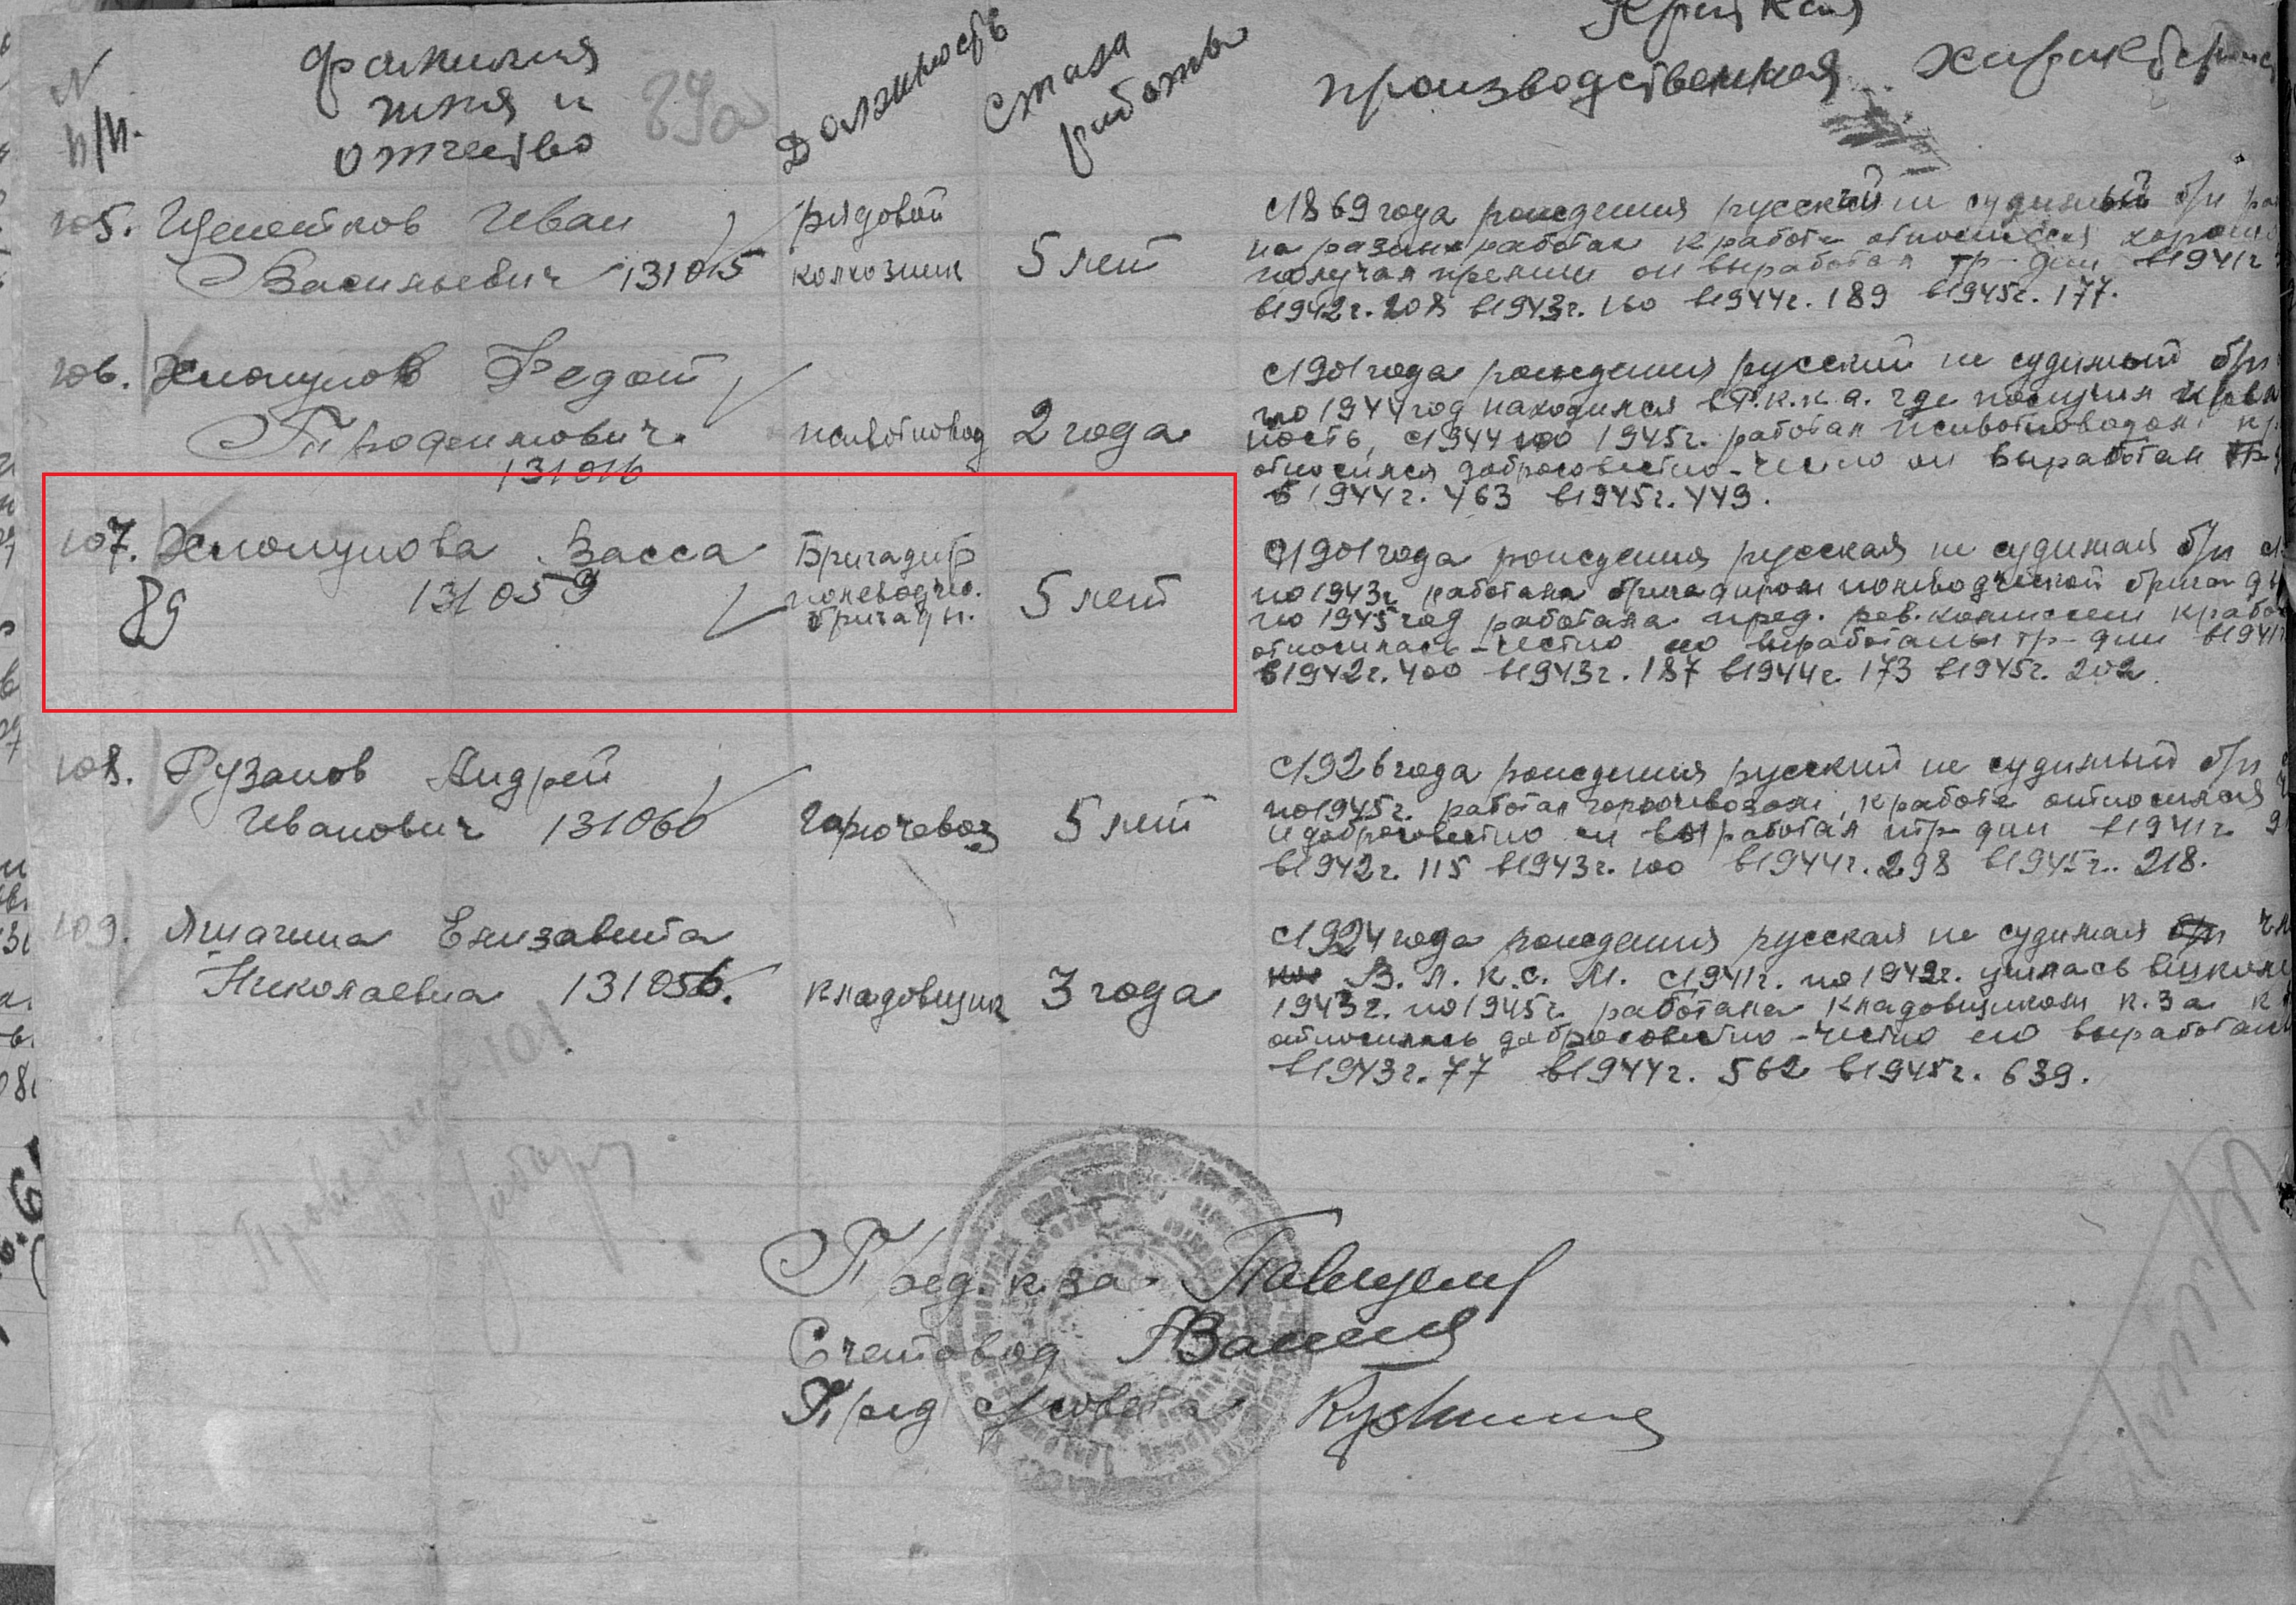 N п/п.
фамилия имя и отчество
89а
Должность
стаж работы
Краткая
производственная характерист
105. Щепетков Иван
Васильевич 131015
рядовой колхозник
5 лет
С 1869 года рождения русский не судимый б/п
на разных работах к работе относился хорошо
получал премии он выработал тр-дни в 1941г
в 1942г. 208 в 1943г. 160 в 1944г. 189 в 1945г. 177.
106. Хлопунов Федот
Трофимович
131016
животновод
2 года
С 1901 года рождения русский не судимый б/п
по 1944 год находился в Р.К.К.А. где получил
ность, с 1944 по 1945г. работал животноводом к
относился добросовестно-честно он выработал тр-
в 1944г. 463 в 1945г. 449.
107. Хлопунова Васса
131059
89
Бригадир
полеводчес.
бригады.
5 лет
С 1901 года рождения русская не судимая б/п с
по 1943г работала бригадиром полеводческой бригады
по 1945 год работала пред. рев. комиссии к работе
относилась-честно ею выработаны тр-дни в 1941г
в 1942г. 400 в 1943г. 187 в 1944г. 173 в 1945г. 202
108. Рузанов Андрей
Иванович 131060
горючевоз
5 лет
С 1926 года рождения русский не судимый б/п
по 1945г. работал горючевозом, к работе относился
и добросовестно он выработал тр-дни в 1941г
в 1942г. 115 в 1943г. 100 в 1944г. 298 в 1945г. 218.
109. Ямагина Елизавета
Николаевна 131056.
кладовщик
3 года
С 1924 года рождения русская не судимая б/п чл
В.Л.К.С.М. с 1941г. по 1942г. училась в школе
1943г. по 1945г. работала кладовщиком к.за к
относилась добросовестно-честно ею выработано
в 1943г. 77 в 1944г. 562 в 1945г. 639.
101
Пред. к.за
Счетовод
Пред с/совета